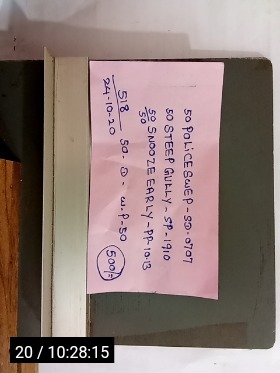 518
24-10-20
50 POLICESWEP - SD - 0707
50 STEEP GULLY - SP - 1910
50/50 SNOOZE EARLY - PP - 10.13
50 - D - W.P - 50
500/-
20 / 10:28:15